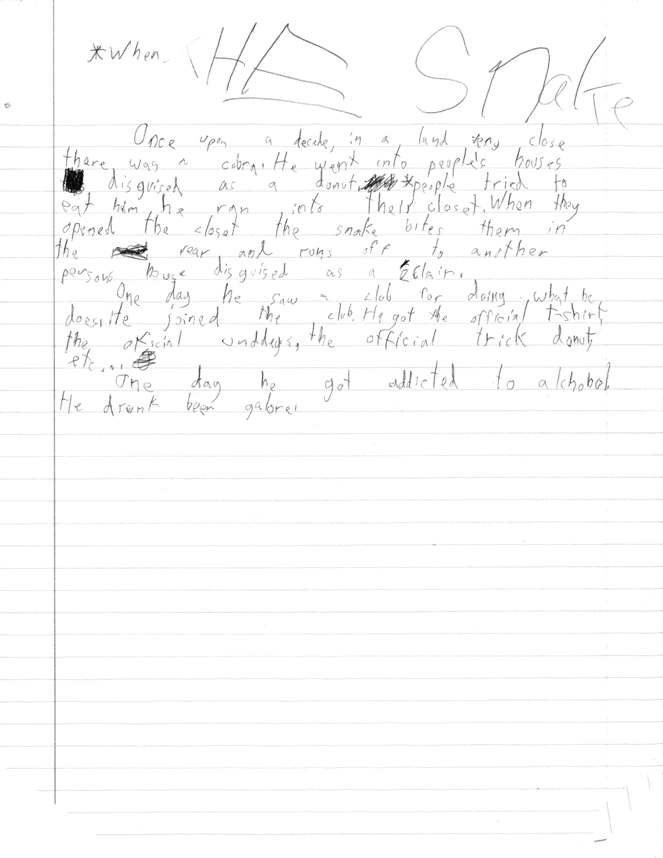 *When THE Snake
Once upon a decide, in a land very close
there was a cobra. He went into people's houses
disguised as a donut. *people tried to
eat him he ran into their closet. When they
opened the closet the snake bites them in
the rear and runs off to another
persons house disguised as a éclair.
One day he saw a club for doing what he
does. He joined the club. He got the official t-shirt,
the official unddegs, the official trick donut,
etc...
One day he got addicted to alchohol
He drunk been